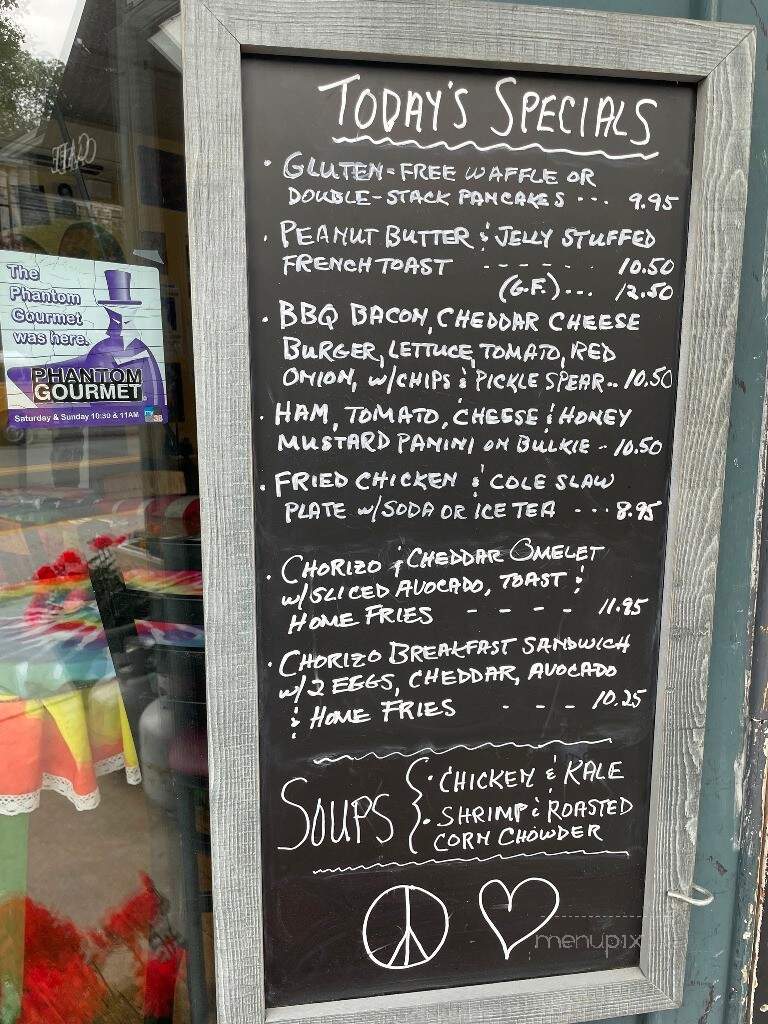 TODAY'S SPECIALS
• GLUTEN-FREE WAFFLE OR
DOUBLE-STACK PANCAKES ... 9.95
• PEANUT BUTTER & JELLY STUFFED
FRENCH TOAST - - - - - 10.50
(G.F.)... 12.50
• BBQ BACON, CHEDDAR CHEESE
BURGER, LETTUCE, TOMATO, RED
ONION, W/CHIPS & PICKLE SPEAR.. 10.50
• HAM, TOMATO, CHEESE & HONEY
MUSTARD PANINI ON BULKIE - 10.50
• FRIED CHICKEN & COLE SLAW
PLATE W/SODA OR ICE TEA --- 8.95
• CHORIZO & CHEDDAR OMELET
W/SLICED AVOCADO, TOAST &
HOME FRIES - - - - 11.95
• CHORIZO BREAKFAST SANDWICH
W/2 EGGS, CHEDDAR, AVOCADO
& HOME FRIES - - - 10.25
SOUPS { • CHICKEN & KALE
• SHRIMP & ROASTED
CORN CHOWDER
menupix
CAFE
The
Phantom
Gourmet
was here.
PHANTOM
GOURMET
Saturday & Sunday 10:30 & 11AM my 38